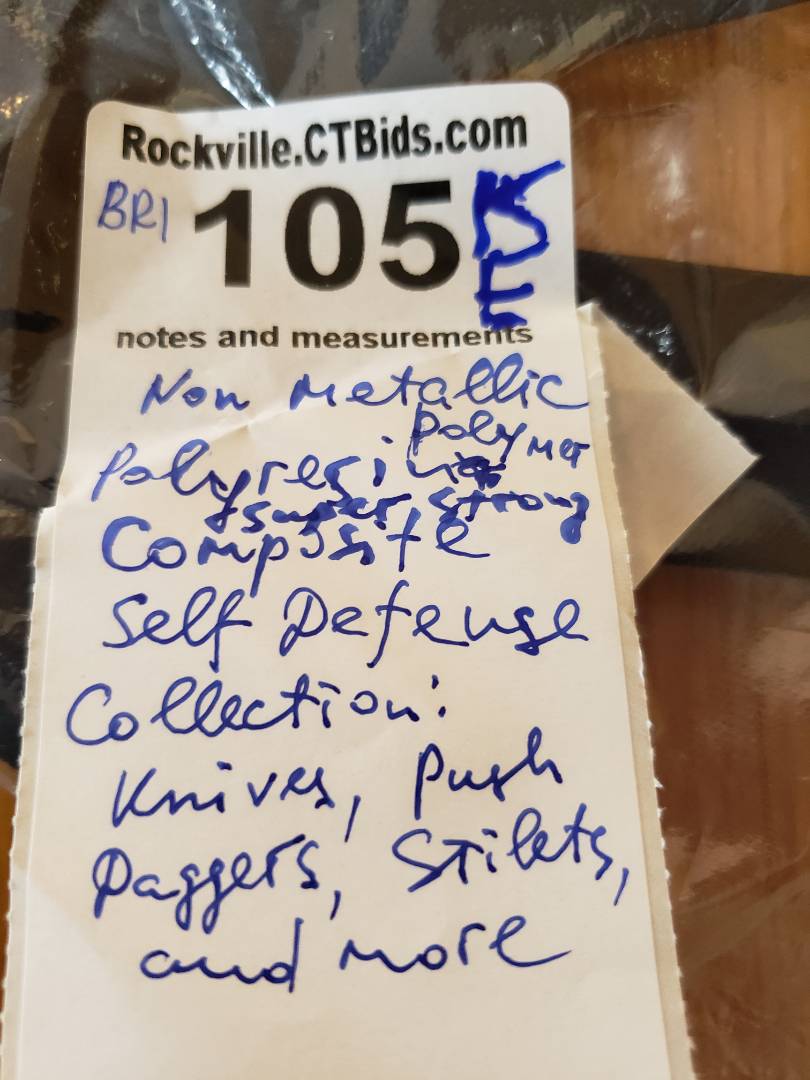 Rockville.CTBids.com
BR1 105 KSE
notes and measurements
Non Metallic
Polymer
Polyresin
super strong
Composite
Self Defense
Collection:
Knives, Push
Daggers, Stilets,
and more